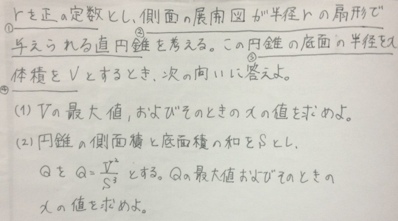 rを正の定数とし、側面の展開図が半径rの扇形で
①
②
与えられる直円錐を考える。この円錐の底面の半径をx
③
体積をVとするとき、次の問いに答えよ。
④
(1) Vの最大値,およびそのときのxの値を求めよ。
(2) 円錐の側面積と底面積の和をSとし、
QをQ=V²/S³とする。Qの最大値およびそのときの
xの値を求めよ。